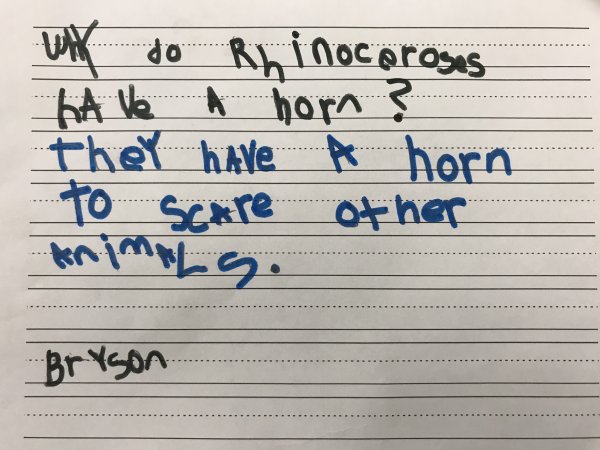 WHY do Rhinoceroses
hAve A horn?
theY hAVe A horn
To ScAre other
AnimALS.
BrYson